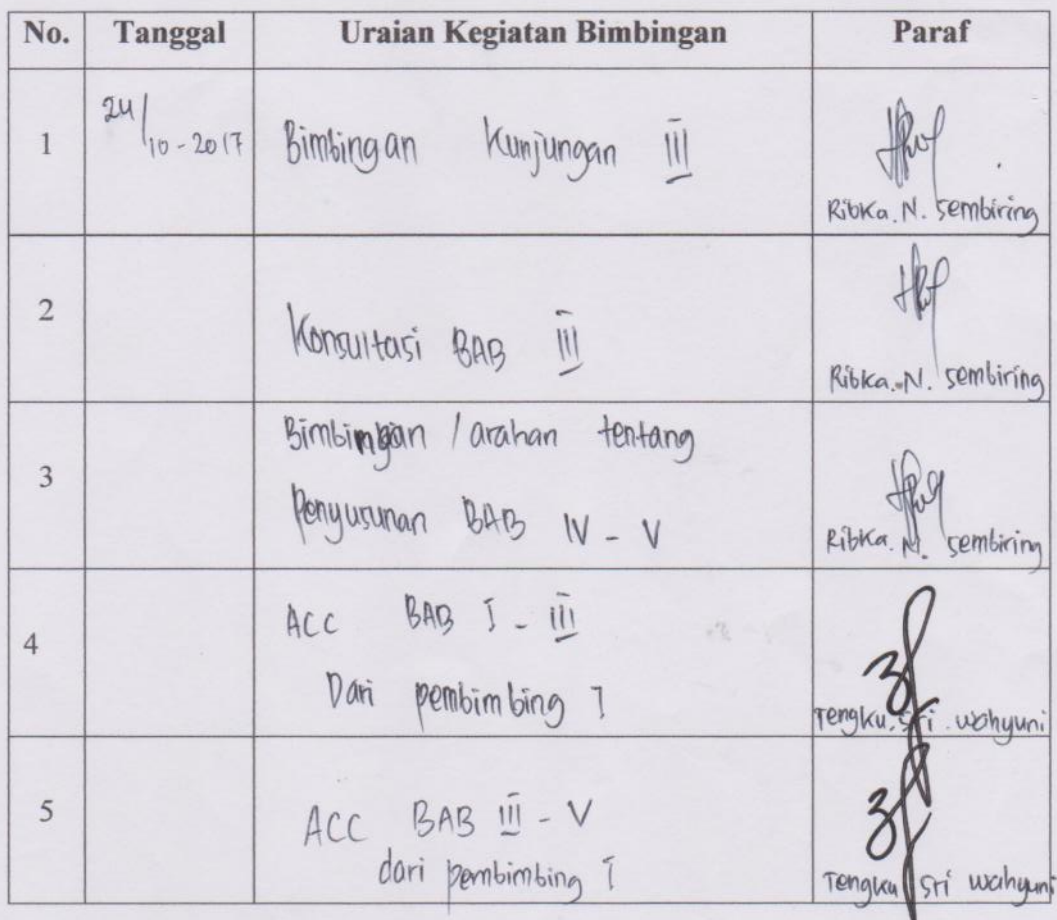 No. Tanggal Uraian Kegiatan Bimbingan Paraf
1 24/10-2017 Bimbingan Kunjungan III
Ribka. N. Sembiring
2 Konsultasi BAB III
Ribka. N. Sembiring
3 Bimbingan / arahan tentang
Penyusunan BAB IV - V
Ribka. N. Sembiring
4 ACC BAB I - III
Dari pembimbing I
Tengku. Sri Wahyuni
5 ACC BAB III - V
dari pembimbing I
Tengku Sri Wahyuni